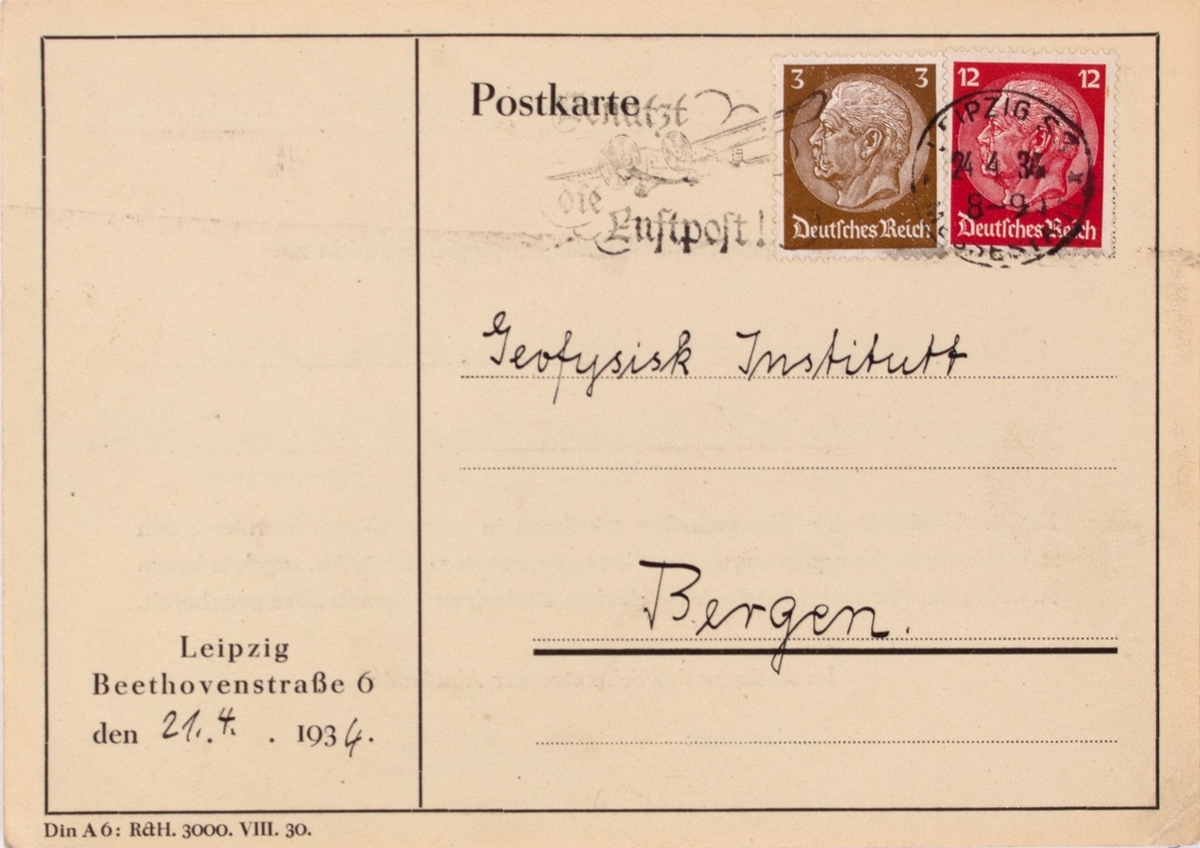 Postkarte
Benutzt
die
Luftpost!
3 3
Deutsches Reich
12 12
Deutsches Reich
LEIPZIG
24 4 34
8-9
Geofysisk Institutt
Bergen.
Leipzig
Beethovenstraße 6
den 21. 4. . 1934.
Din A 6: R&H. 3000. VIII. 30.